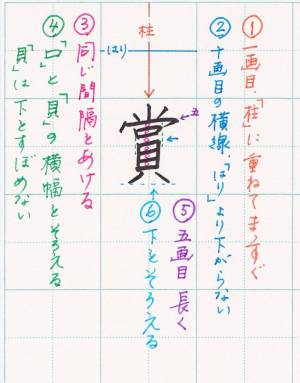 ① 一画目、「柱」に重ねてまっすぐ
② 十画目の横線、「はり」より下がらない
柱
はり
賞
五
③ 同じ間隔をあける
④ 「口」と「貝」の横幅をそろえる
「貝」は下をすぼめない
⑤ 五画目 長く
⑥ 下をそろえる